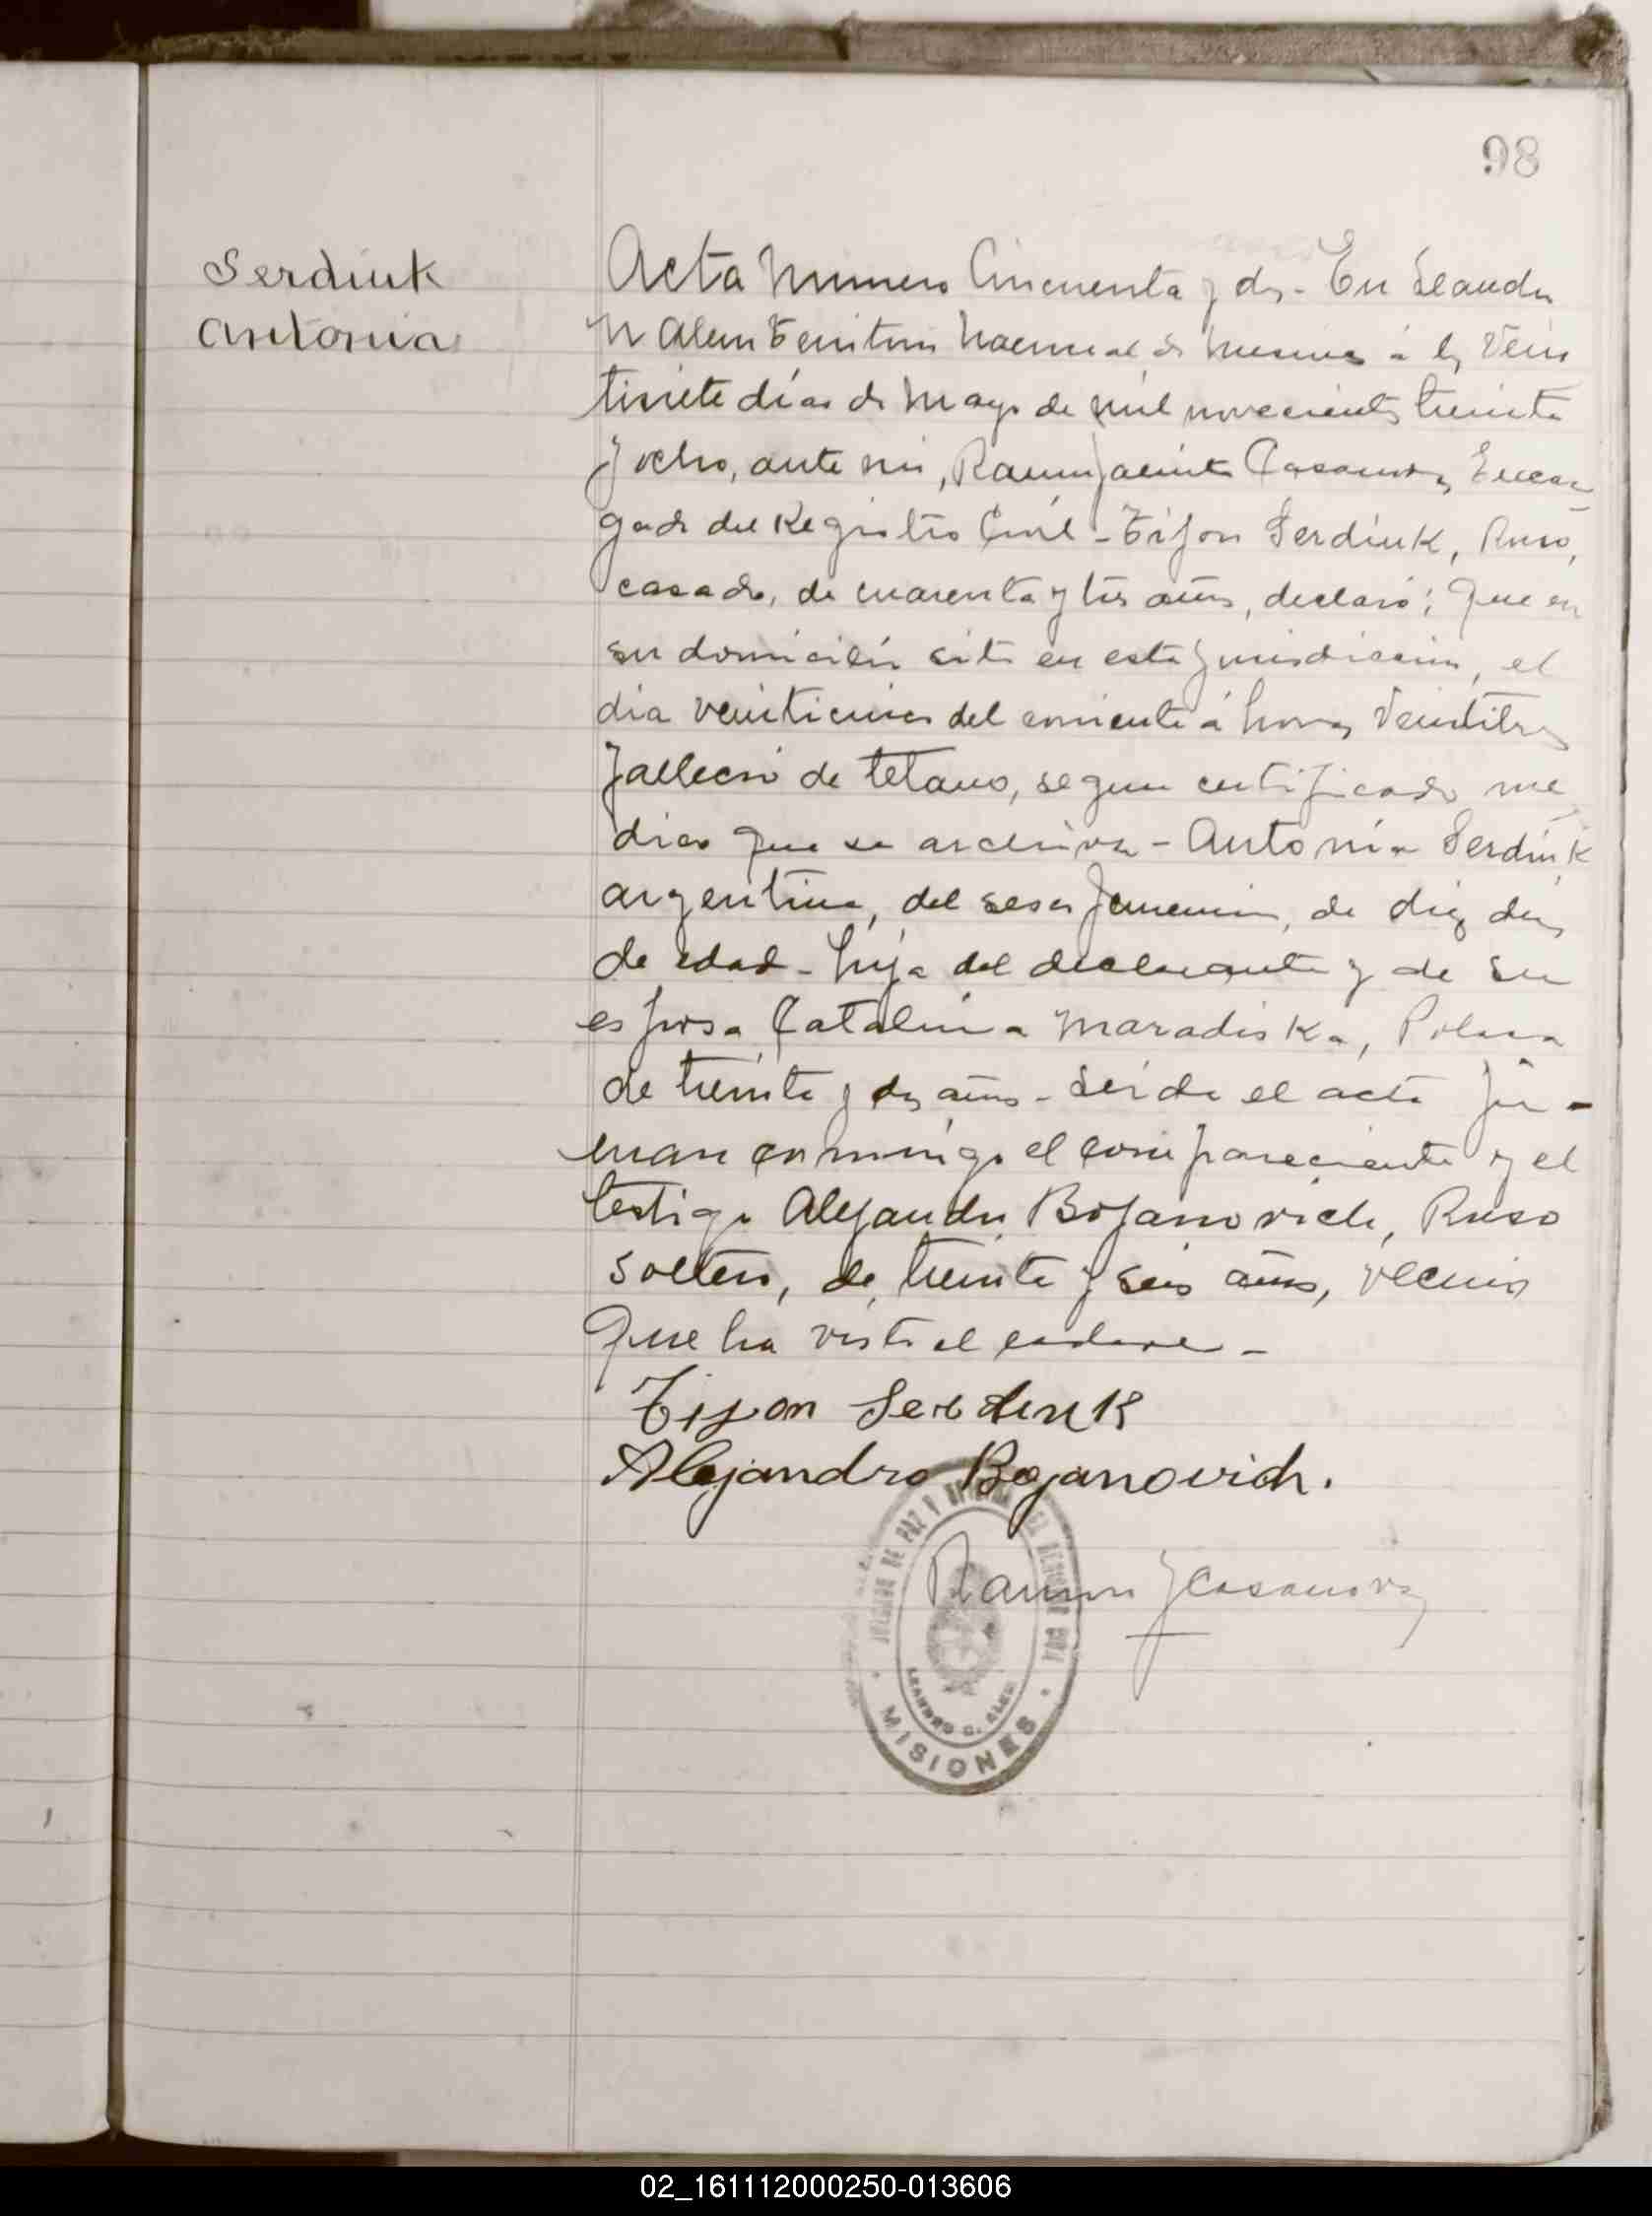 98
Serdiuk
Antonia
Acta Numero Cincuenta y dos - En Leandro
N Alem Territorio Nacional de Misiones a los Vein
tisiete días de Mayo de mil novecientos treinta
y ocho, ante mi, Ramon Jacinto Casanova, Encar
gado del Registro Civil - Tifon Serdiuk, Ruso,
casado, de cuarenta y tres años, declaró; Que en
su domicilio sito en esta jurisdiccion, el
día veinticinco del corriente á horas Veintitres
falleció de tetano, segun certificado me
dico que se archiva - Antonia Serdiuk
argentina, del sexo femenino, de diez dias
de edad - hija del declarante y de su
esposa Catalina Maradiska, Polaca
de treinta y dos años - Leida el acta fir -
man conmigo el compareciente y el
testigo Alejandro Bojanovich, Ruso
soltero, de treinta y seis años, vecino
Que ha visto el cadaver -
Tifon Serdiuk
Alejandro Bojanovich.
Ramon J Casanova
JUZGADO DE PAZ Y OFICINA DEL REGISTRO CIVIL
LEANDRO N. ALEM
MISIONES
02_161112000250-013606